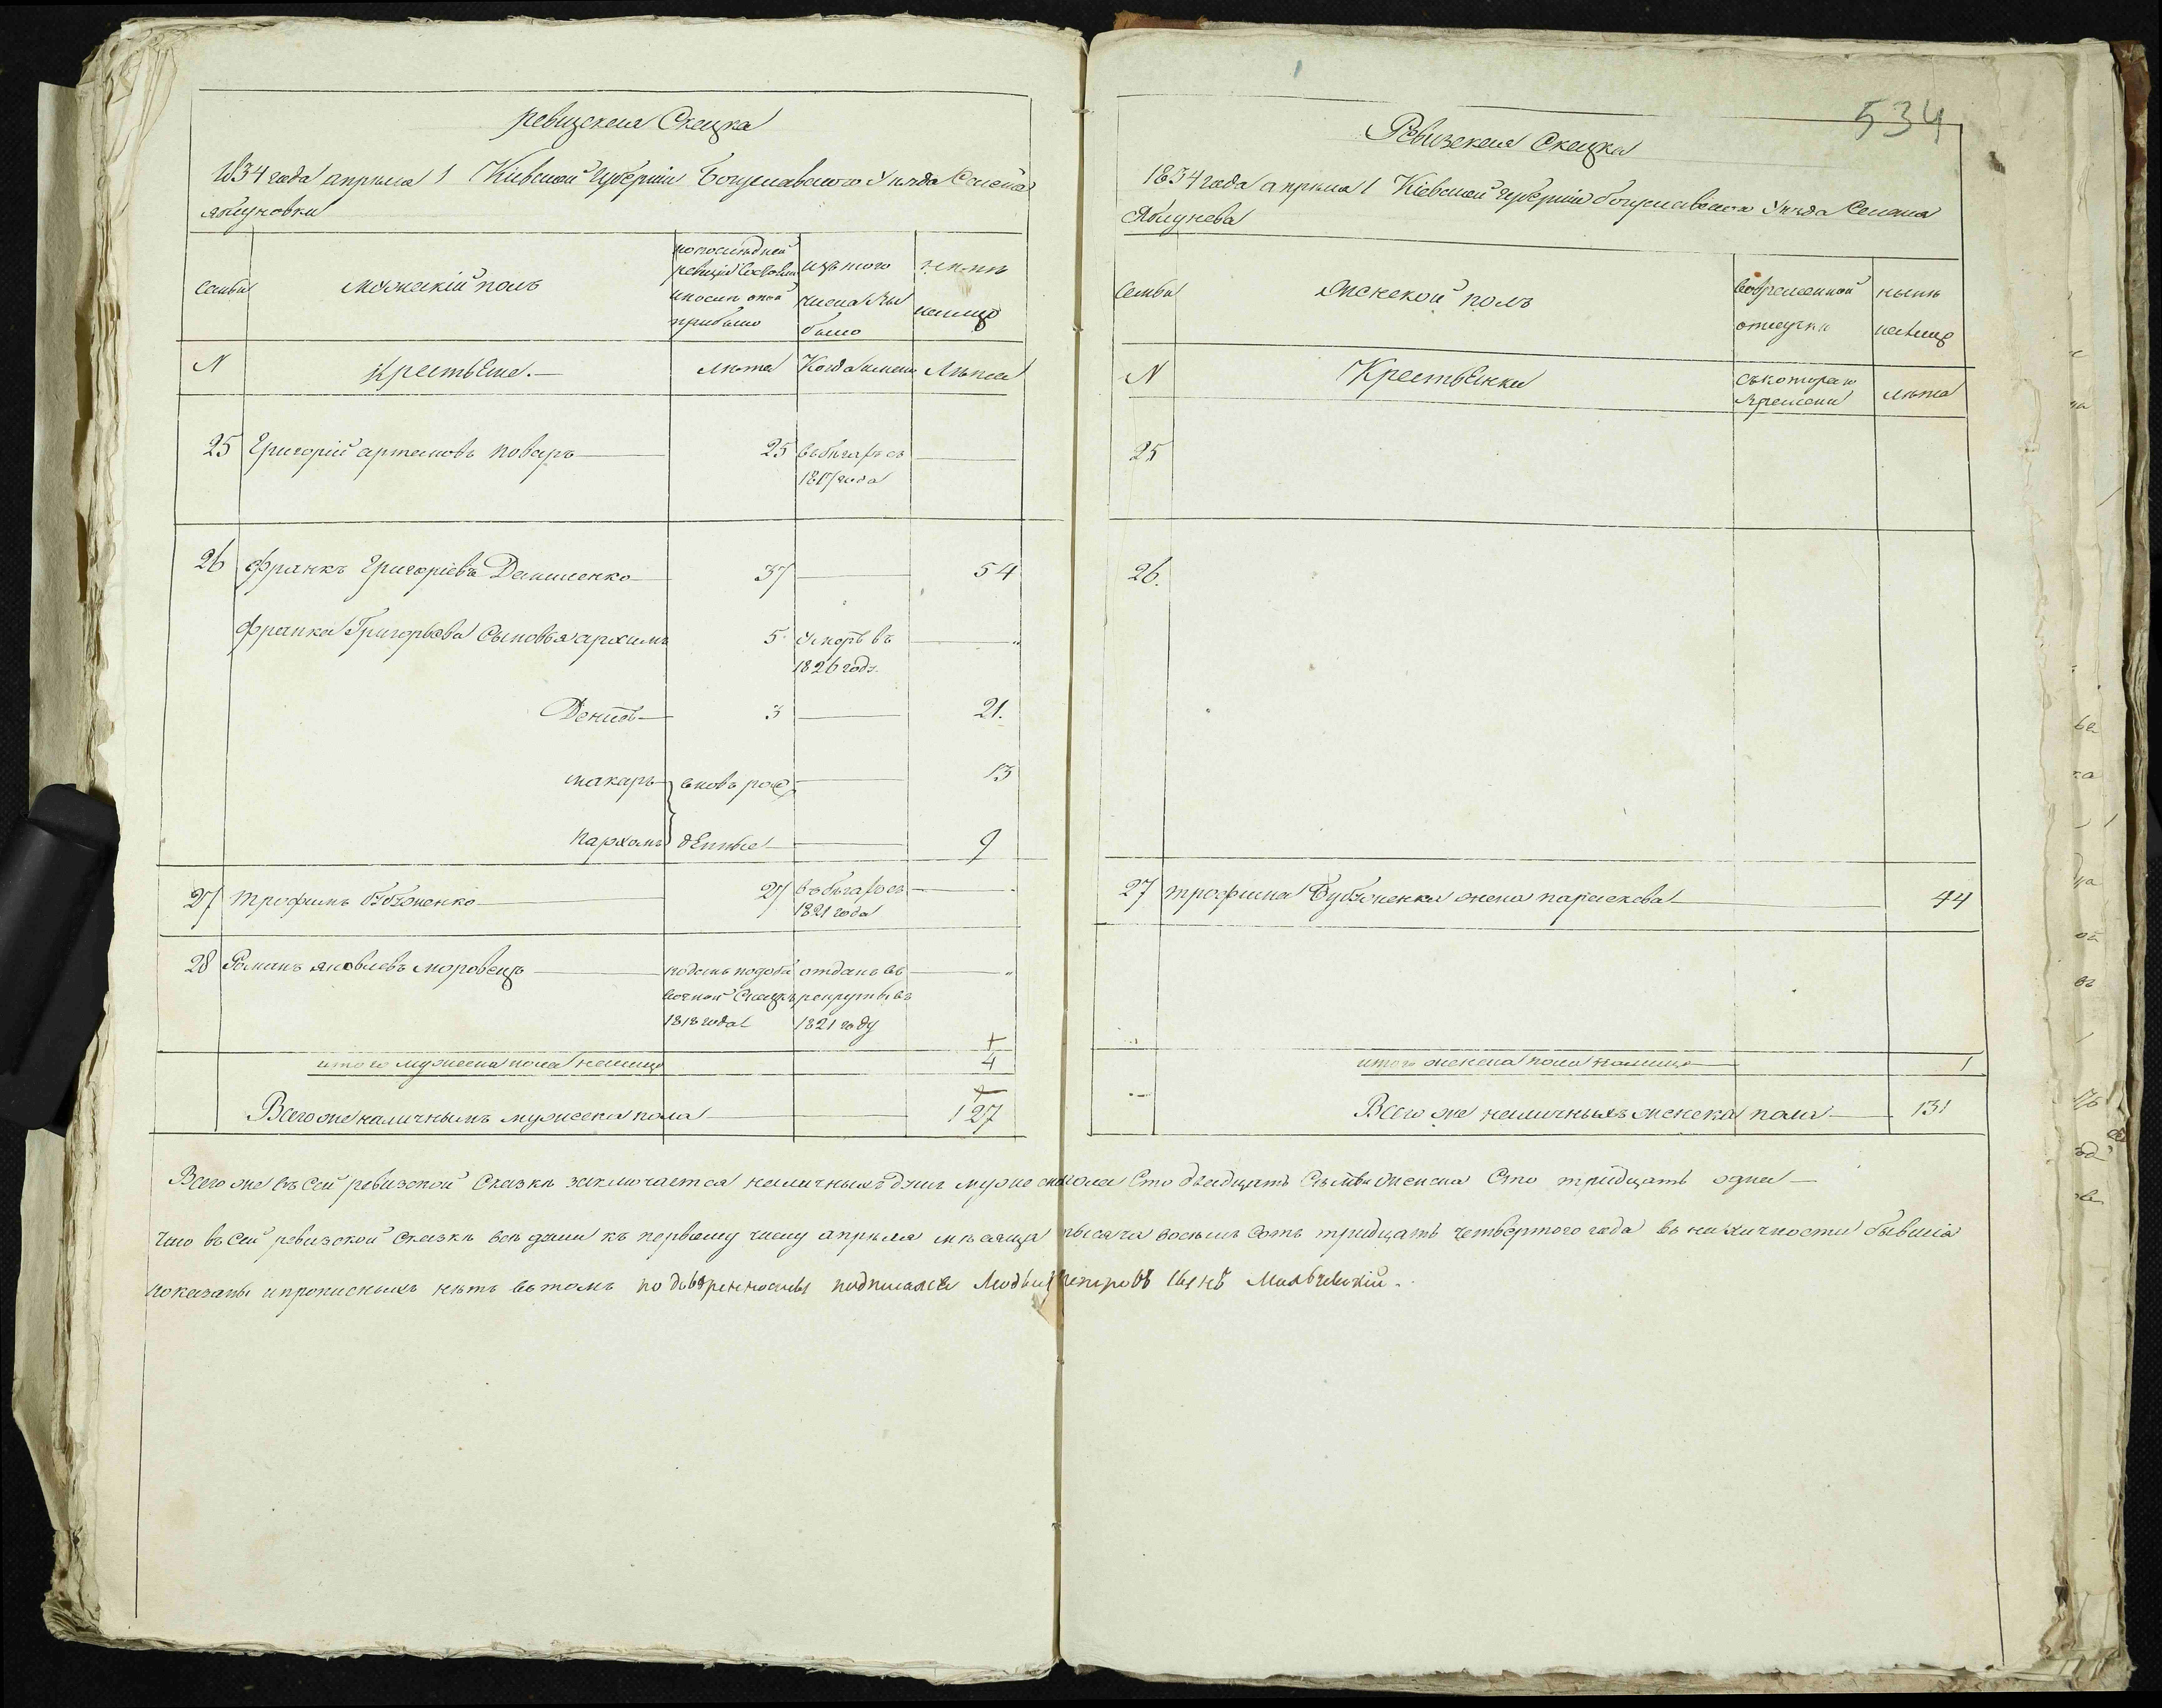 ревизская Сказка
1834 года апреля 1 Киевской Губернии Богуславского Уезда Селения
Яблуновки
семьи
Мужеский полъ
по последней ревизии состояло и после оной прибыло
изъ того числа выбыло
ныне на лицо
N
Крестьяне.
лета
Когда именно
Лета
25 Григорий артемовъ поваръ 25 въ бегахъ съ
1817 года
26 Франкъ Григориевъ Даниленко 37 54
Франка Григорьева Сыновья архипъ 5 умеръ въ
1826 годе.
Денисъ 3 21.
макаръ вновь рож 13
пархомъ денные 9
27 трофимъ Бубоненко 27 въ бегахъ съ
1821 года
28 Романъ яковлевъ моровецъ поданъ по доба отданъ въ
вочной Сказке рекруты въ
1818 года 1821 году
итого мужеска пола налицо 4
Всего же наличнымъ мужеска пола 127
534
Ревизская Сказка
1834 года апреля 1 Киевской губернии богуславского Уезда Селения
Яблунова
Семьи
Женской полъ
во временной отлучке
ныне налицо
N
Крестьянки
съ котораго времени
лета
25
26.
27 трофима Бубоненка жена параскева 44
итого женска пола налицо 1
Всего же наличныхъ женска пола 131
Всего же въ сей ревизской Сказке заключается наличныхъ душъ мужеска пола Сто двадцать Семь женска Сто тридцать одна
Что въ сей ревизской сказке все души къ первому числу апреля месяца тысяча восемь сотъ тридцать четвертого года въ наличности бывшiя
показаны и прописныхъ нетъ въ томъ по доверенности подписался Людвигъ петровъ Сынъ